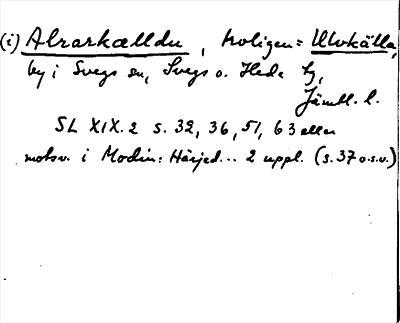 (i) Alrarkælldu, troligen = Ulvkälla,
by i Svegs sn, Svegs o. Hede tg,
Jämtl. l.
SL XIX. 2 s. 32, 36, 51, 63 eller
motsv. i Modin: Härjed... 2 uppl. (s. 37 o.s.v.)